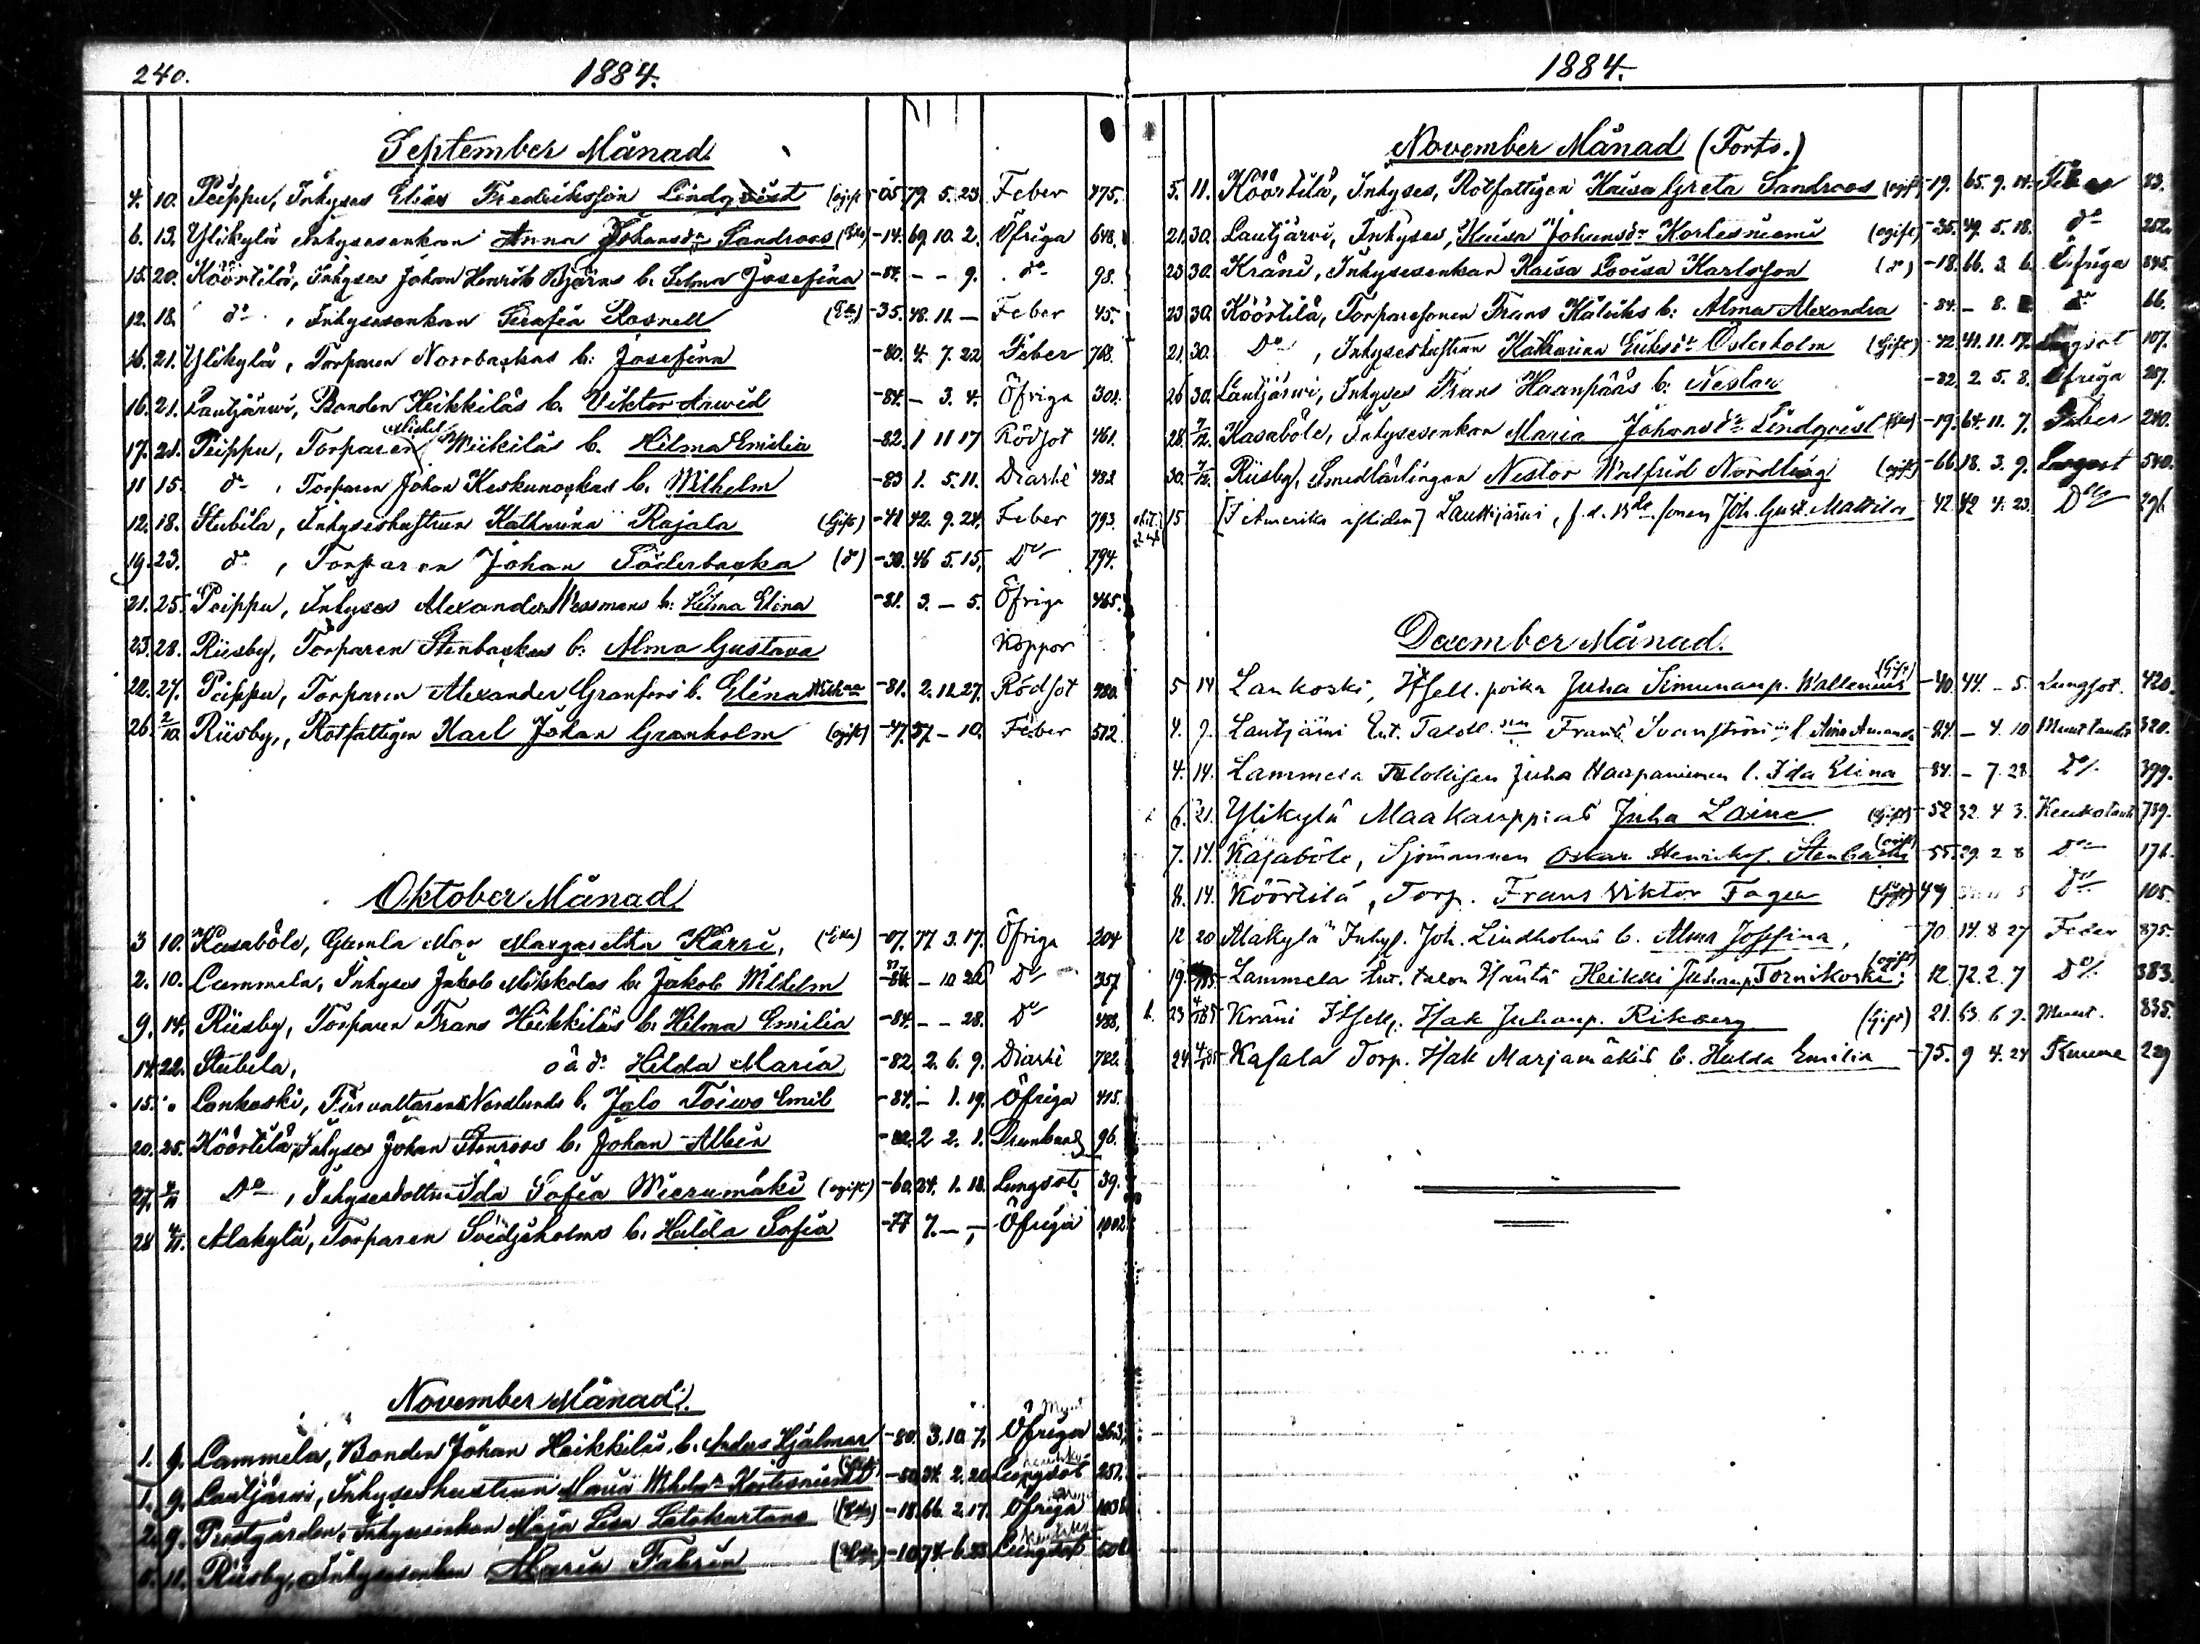 240.
1884.
September Månad
4. 10. Peippu, Inhyses Elias Fredriksson Lindqvist (ogift) -05 79. 5. 23. Feber 475.
6. 13. Ylikylä Inhysesenkan Anna Johansdr Sandroos (Eka) -14. 69. 10. 2. Öfriga 648.
15. 20. Köörtilä, Inhyses Johan Henrik Björns b. Selma Josefina -84. - - 9. do 98.
12. 18. do, Inhysesenkan Serafia Rosnell (Eka) -35. 48. 11. - Feber 45.
16. 21. Ylikylä, Torparen Norrbackas b. Josefina -80. 4. 7. 22. Feber 768.
16. 21. Lautjärwi, Bonden Heikkiläs b. Viktor Arwid -84. - 3. 4. Öfriga 301.
17. 21. Peippu, Torparen Michel Wiikiläs b. Hilma Emilia -82. 1 11 17 Rödsot 461.
11 15. do, Torparen Johan Keskunackas b. Wilhelm -83 1. 5. 11. Diarhé 482
12. 18. Stubila, Inhyseshustrun Katharina Rajala (Gift) -41 42. 9. 24. Feber 793.
19. 23. do, Torparen Johan Söderbacka (do) -38. 46 5. 15. Do 794.
21. 25. Peippu, Inhyses Alexander Wessmans b. Hilma Elina -81. 3. - 5. Öfriga 465.
23. 28. Riisby, Torparen Stenbackas b. Alma Gustava Koppor
22. 27. Peippu, Torparen Alexander Granfors b. Elina -81. 2. 11. 27. Rödsot 480.
26. 2/10. Riisby, Rotfattigen Karl Johan Granholm (ogift) -47. 37 - 10. Feber 512.
Oktober Månad
3 10. Kasaböle, Gamla Mor Margaretha Karri, (Eka) -07. 77 3. 17. Öfriga 204
2. 10. Lammela, Inhyses Jakob Mikkolas b. Jakob Wilhelm - 10 26 Do 357
9. 14. Riisby, Torparen Frans Heikkiläs b. Hilma Emilia -84. - - 28. Do 488.
14. 22. Stubila, o ä do Hilda Maria -82. 2. 6. 9. Diarhé 782.
15. " Lankoski, Förvaltaren Nordlunds b. Jalo Toiwo Emil -84. - 1. 19. Öfriga 415.
20. 25. Köörtilä, Inhyses Johan Stenroos b. Johan Albin -82. 2 2. 1. 96.
27. Do, Inhysesdottren Ida Sofia Wierumäki (ogift) -60. 24. 1. 18. Lungsot 39.
28 Alakylä, Torparen Svedjeholms b. Hilda Sofia -77 7. - - Öfriga 1002
November Månad.
1. 9. Lammela, Bonden Johan Heikkiläs b. Hjalmar -80. 3. 10. 7. Öfriga 363.
1. 9. Lautjärwi, Inhyseshustrun Maria Wilhelmsdr Kortesniemi -50. 34. 2. 20. Lungsot 251.
2. 9. Prestgården, Inhysesenkan Maja Lisa Latokartano (Eka) -18. 66. 2. 17. Öfriga
11. Riisby, Inhysesenkan Maria Fabrin (Eka) -10. 74. 6. 23 Lungsot
1884.
November Månad (Forts.)
5. 11. Köörtilä, Inhyses, Rotfattigen Kaisa Greta Sandroos (ogift) -19. 65. 9. Feber 33.
21. 30. Lautjärvi, Inhyses, Kaisa Johansdr Kortesniemi (ogift) -35. 49. 5. 18. do 252.
23 30. Kräni, Inhysesenkan Kaisa Lovisa Karlsson (do) -18. 66. 3. 6. Öfriga 845.
23 30. Köörtilä, Torparesonen Frans Käluiks b. Alma Alexandra -84. - 8. do 66.
21. 30. Do, Inhyseshustrun Katharina Eriksdr Österholm (Gift) -42. 41. 11. 17. Lungsot 107.
26 30. Lautjärwi, Inhyses Frans Haanpääs b. Nestor -82. 2. 5. 8. Öfriga 257.
28. 7/12. Kasaböle, Inhysesenkan Maria Johansdr Lindqvist (Eka) -19. 64. 11. 7. Feber 240.
30. 7/12. Riisby, Smedlärlingen Nestor Walfrid Nordling (ogift) -66. 18. 3. 9. Lungsot 540.
15 [I Amerika afliden] Lauttijärvi, f. d. Bde sonen Joh. Gust. Mattila 42. 42 4. 23. Do 296
December Månad.
5 14 Lankoski, Itsell. poika Juha Simunanp. Wallenius (Gift) -40 44. - 5. Lungsot. 420.
4. 7. Lautjärvi Ent. Taloll. Frans Svanström l. Aina Amanda -84. - 4. 10 Muut taudit 320.
4. 14. Lammela Talollisen Juha Haapaniemen l. Ida Elina -84. - 7. 28 Do/. 399.
6. 21. Ylikylä Maakauppias Juha Laine (Gift) -52 32. 4 3. Keuhkotauti 739.
7. 14. Kasaböle, Sjömannen Oskar Henriksf. Stenbäck (ogift) -55. 29. 2 8 Do 171.
8. 14. Köörtilä, Torp. Frans Viktor Fager (Gift) 49 5 Do 105.
12 20 Alakylä Inhys. Joh. Lindholms b. Alma Josefina, 70. 14. 8 27 Feber 875.
19. Lammela Ent. talon Isäntä Heikki Juhanp. Tornikoski (ogift) 12. 72. 2. 7 Do/. 383.
23 Kräni Itsell. Isak Juhanp. Rikberg (Gift) 21. 63. 6 7. Muut. 835.
24 Kasala Torp. Isak Marjamäkis b. Hulda Emilia -75. 9 4. 24 229